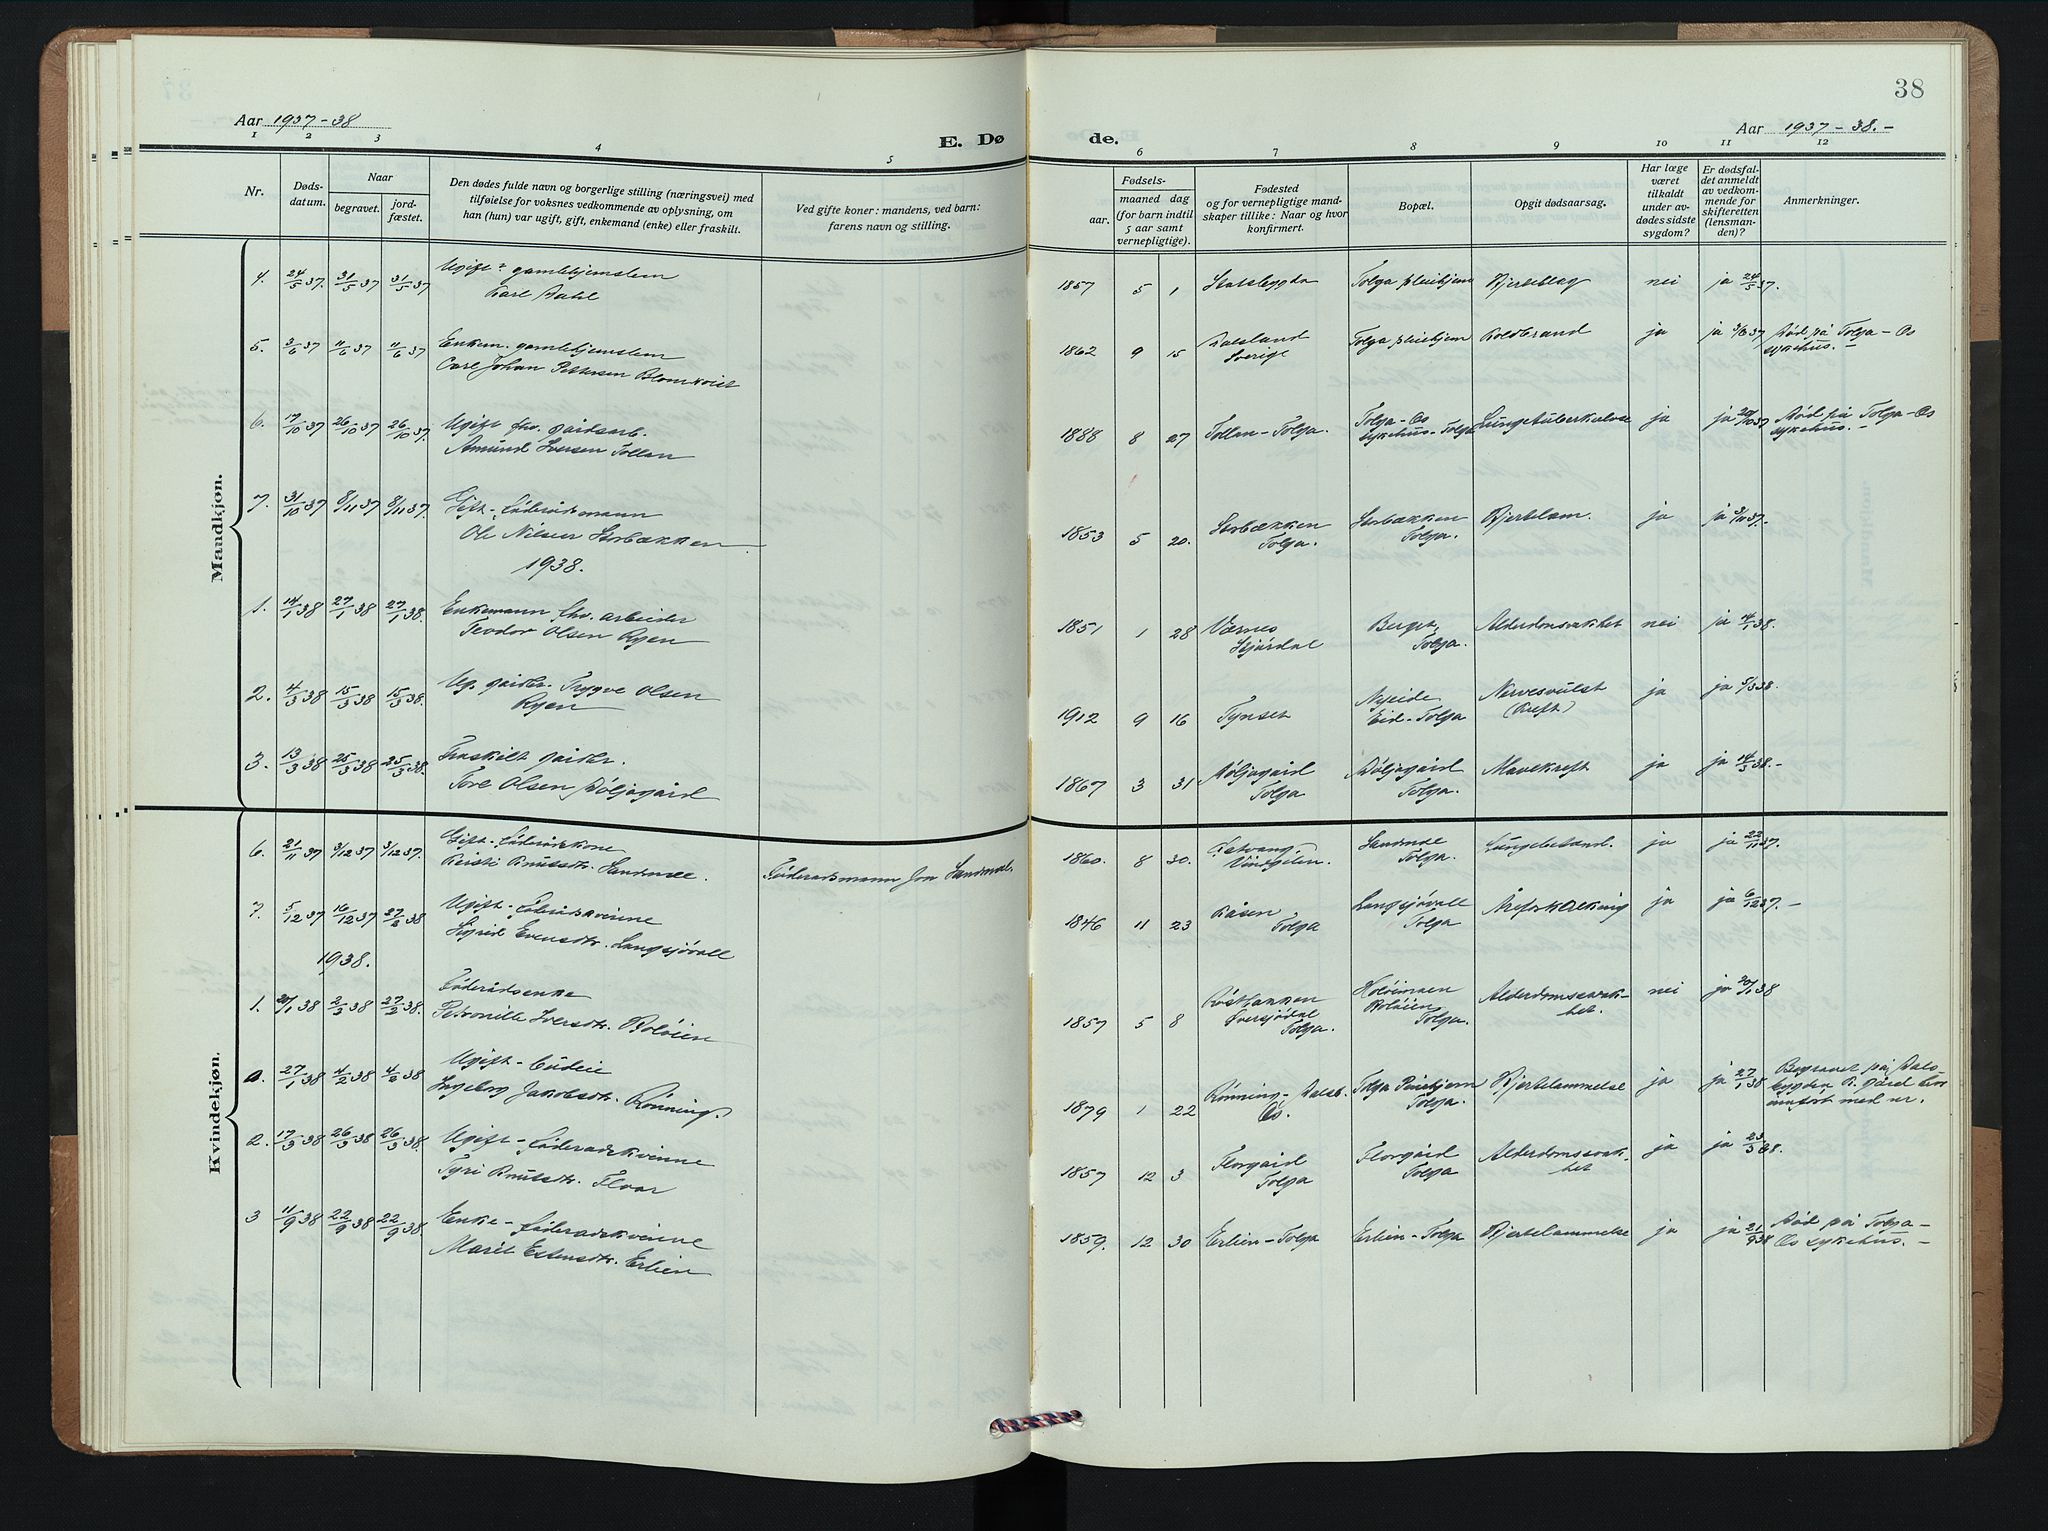 38
Aar 1937-38
Aar 1937-38.-
E. Dø
de.
1 2 3 4 5 6 7 8 9 10 11 12
Nr.
Døds-
datum.
Naar
begravet.
jord-
fæstet.
Den dødes fulde navn og borgerlige stilling (næringsvei) med
tilføielse for voksnes vedkommende av oplysning, om
han (hun) var ugift, gift, enkemand (enke) eller fraskilt.
Ved gifte koner: mandens, ved barn:
farens navn og stilling.
Fødsels-
aar.
maaned dag
(for barn indtil
5 aar samt
vernepligtige).
Fødested
og for vernepligtige mand-
skaper tillike: Naar og hvor
konfirmert.
Bopæl.
Opgit dødsaarsag.
Har læge
været
tilkaldt
under av-
dødes sidste
sygdom?
Er dødsfal-
det anmeldt
av vedkom-
mende for
skifteretten
(lensman-
den)?
Anmerkninger.
Mandkjøn.
4. 24/5 37. 31/5 37 31/5 37 Ugift gamlehjemslem
Karl Dahl
1857 5 1 Stadsbygda Tolga pleiehjem Hjerteslag nei ja 24/5 37.
5. 3/6 37 11/6 37 11/6 37 Enkem. gamlehjemslem
Carl Johan Pettersen Blomkvist
1862 9 15 Dalsland
Sverige Tolga pleiehjem Koldbrand ja ja 3/6 37 Død på Tolga-Os
sykehus.-
6. 17/10 37 26/10 37 26/10 37. Ugift fhv. gårdsarb.
Amund Iversen Tollan
1888 8 27 Tollan-Tolga. Tolga-Os
sykehus-Tolga Lungetuberkulose ja ja 20/10 37 Død på Tolga-Os
sykehus.-
7. 31/10 37 8/11 37 8/11 37. Gift-Føderådsmann
Ole Nilsen Storbækken
1853 5 20. Storbækken
Tolga. Storbækken
Tolga. Hjertelam. ja ja 3/11 37.
1938.
1. 14/1 38 27/1 38 27/1 38. Enkemann fhv. arbeider
Teodor Olsen Ryen
1851 1 28 Værnes
Stjørdal Berget,
Tolga. Alderdomsvakhet nei ja 14/1 38.
2. 4/3 38 15/3 38 15/3 38. Ug. gårdbr. Trygve Olsen
Ryen
1912 9 16 Tynset Nyeide
Eid-Tolga Nervesvulst
(Kreft) ja ja 5/3 38.
3. 13/3 38 25/3 38 25/3 38. Fraskilt gårdbr.
Tore Olsen Døljagård
1867 3 31 Døljagård
Tolga Døljagård
Tolga. Mavekreft ja ja 14/3 38.-
Kvindekjøn.
6. 21/11 37 3/12 37 3/12 37. Gift-Føderådskone
Kristi Knutsdtr. Sandmæl. Føderådsmann Jon Sandmæl.
1860. 8 30. Vingelen. Sandmæl
Tolga. Lungebetend. ja ja 22/11 37.
7. 5/12 37 16/12 37 27/2 38 Ugift-Føderådskvinne
Sigrid Evensdtr. Langsjøvoll
1846 11 23 Kåsen
Tolga Langsjøvoll
Tolga Åreforkalkning ja ja 6/12 37.-
1938.
1. 20/1 38 2/2 38 27/2 38. Føderådsenke
Petronille Iversdtr. Koløien
1857 5 8 Røstbakken
Øversjødal
Tolga. Holøimoen
Koløien
Tolga. Alderdomssvak-
het. nei ja 20/1 38
0. 27/1 38 4/2 38 4/2 38 Ugift-Budeie
Ingeborg Jakobsdtr. Rønning.
1879 1 22 Rønning-Dalsb.
Os. Tolga Pleiehjem
Tolga. Hjertelammelse ja ja 27/1 38 Begravet på Dals-
bygden K. gård hvor
innført med nr.
2. 17/3 38 26/3 38 26/3 38. Ugift-Føderådskvinne
Tyri Knutsdtr. Floar
1857 12 3 Florgård
Tolga Florgård
Tolga Alderdomssvak-
het ja ja 23/3 38.
3 11/9 38 22/9 38 22/9 38. Enke-føderådskvinne
Marit Estensdtr. Erlien
1859. 12 30 Erlien-Tolga Erlien-Tolga Hjertelammelse ja ja 21/9 38 Død på Tolga-
Os sykehus.-